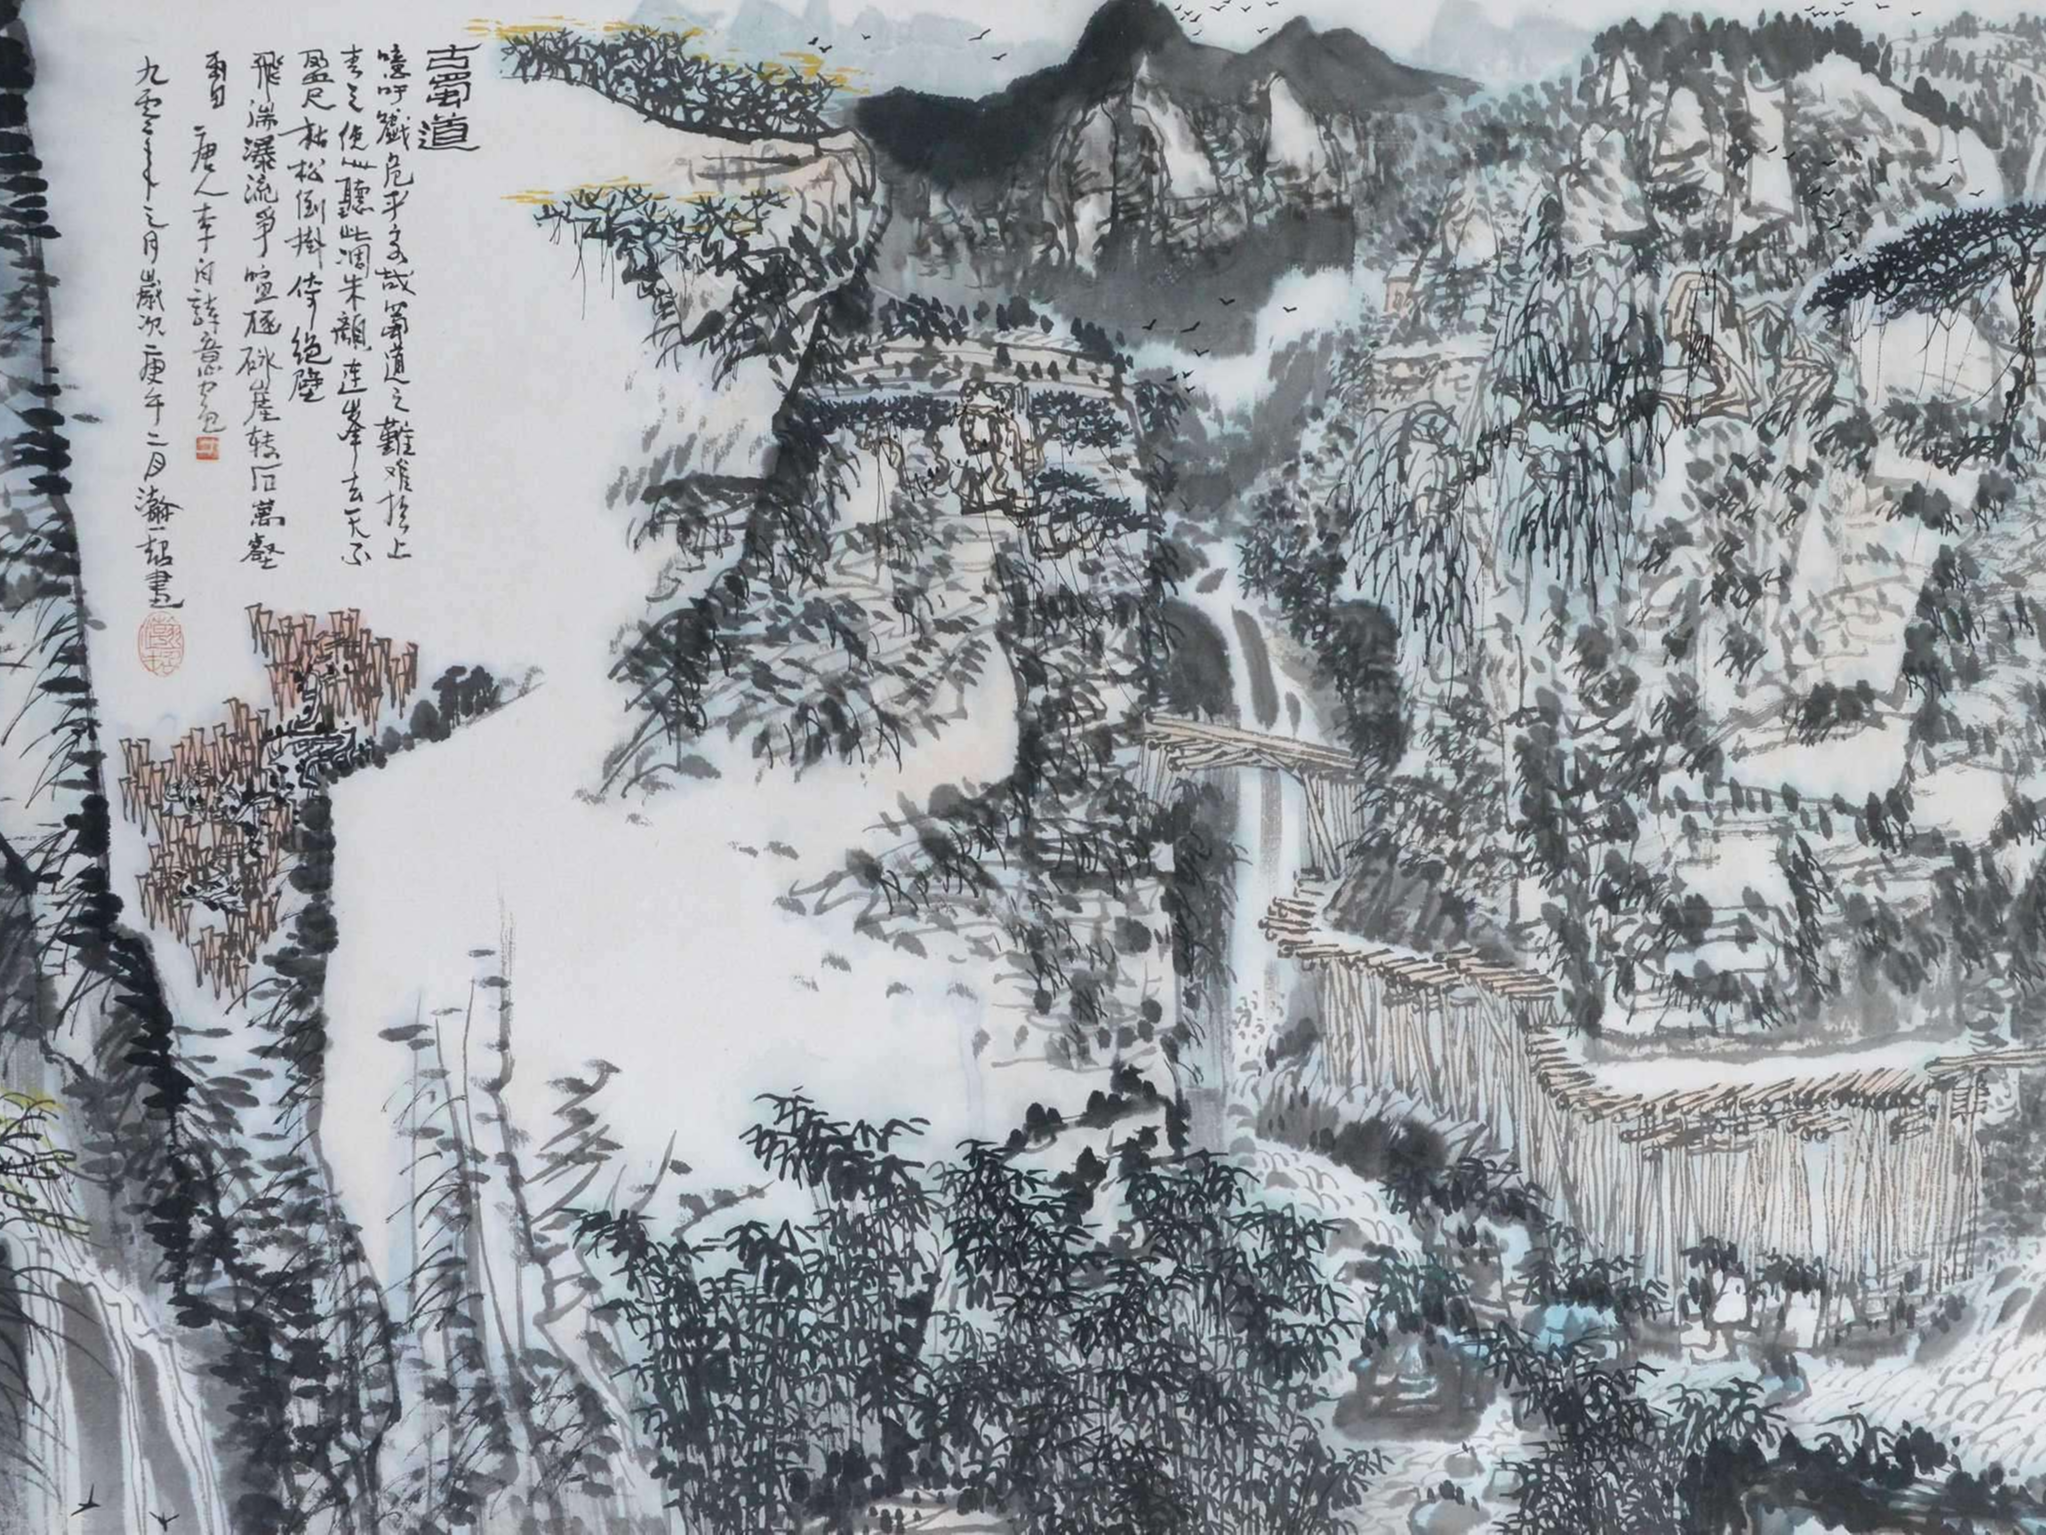 古蜀道
噫吁戲危乎高哉蜀道之難难於上
青之使人聽此凋朱顏連峯去天不
盈尺枯松倒掛倚絕壁
飛湍瀑流爭喧豗砯崖转石萬壑
雷 唐人李白詩意
九零年之月歲次庚午二月瀚超畫